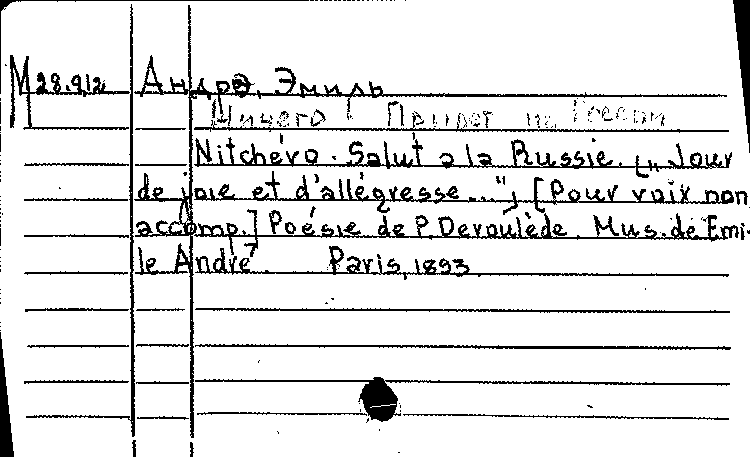 М 28.912 Андрэ, Эмиль
Ничего! Привет из России
Nitchévo. Salut a la Russie. („Jour
de joie et d'allégresse..."), [Pour voix non
accomp.] Poésie de P. Deroulède. Mus. de Emi-
le André. Paris, 1893.